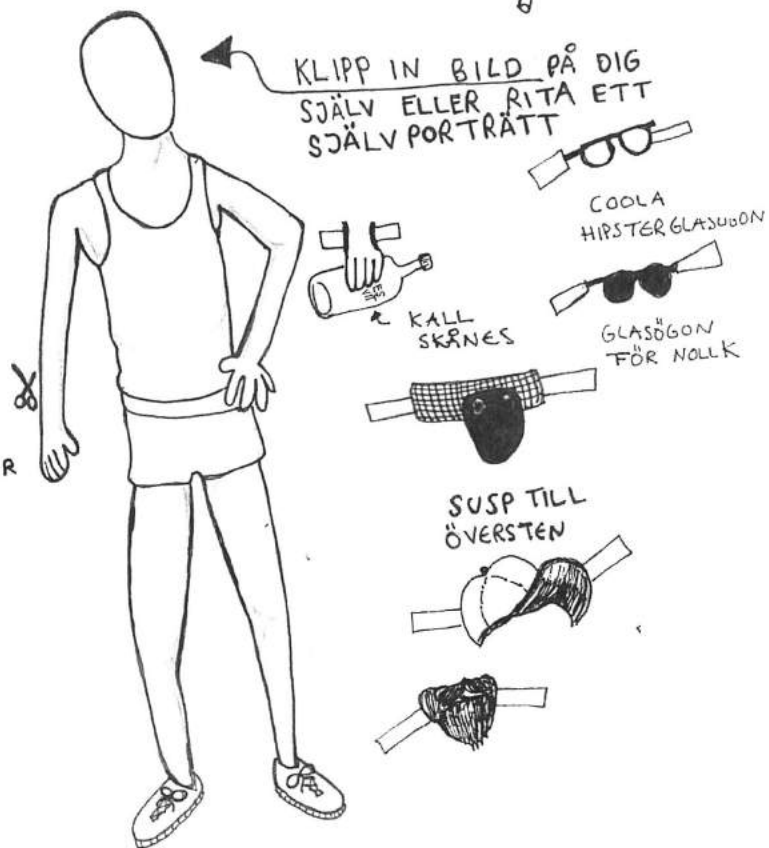 KLIPP IN BILD PÅ DIG
SJÄLV ELLER RITA ETT
SJÄLVPORTRÄTT
COOLA
HIPSTERGLASÖGON
KALL
SKÅNES
GLASÖGON
FÖR NOLLK
R
SUSP TILL
ÖVERSTEN